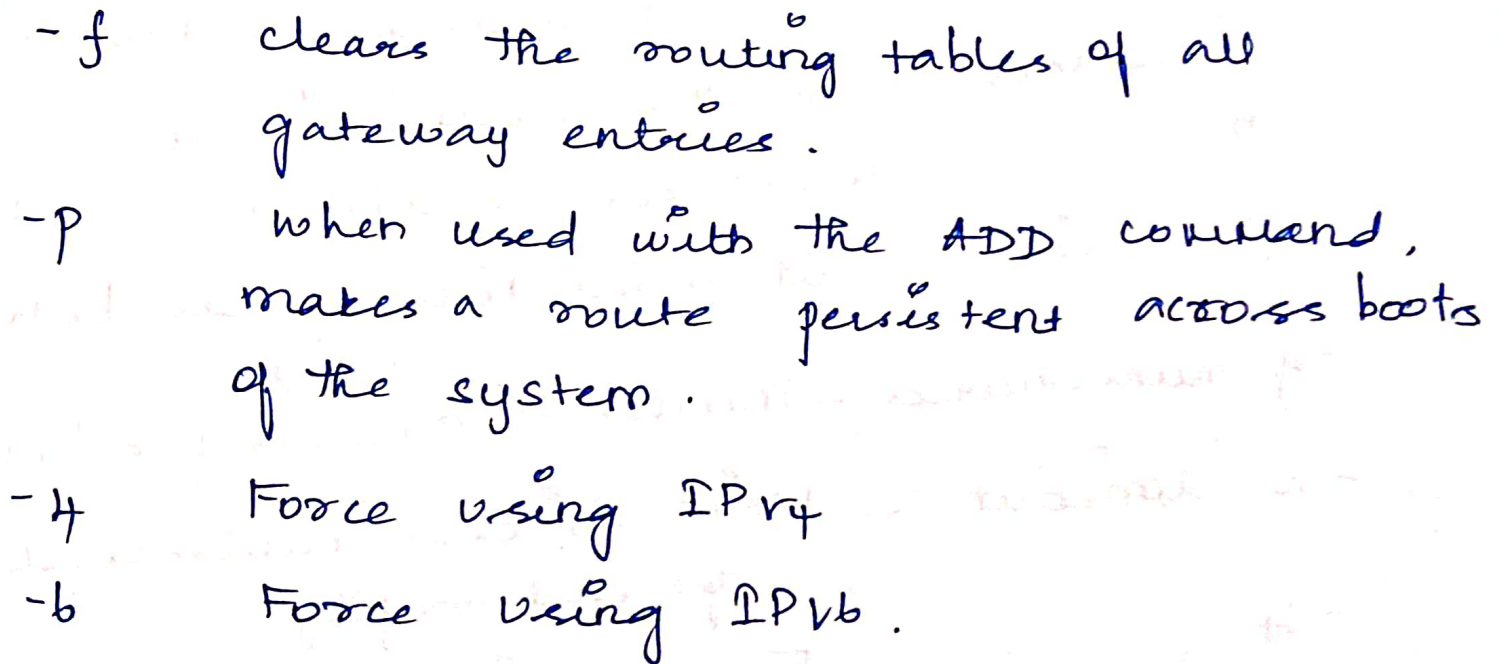 -f clears the routing tables of all
gateway entries.
-p when used with the ADD command,
makes a route persistent across boots
of the system.
-4 Force using IPv4
-6 Force using IPv6.